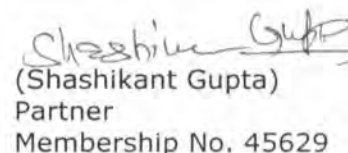 Shashikant Gupta
(Shashikant Gupta)
Partner
Membership No. 45629